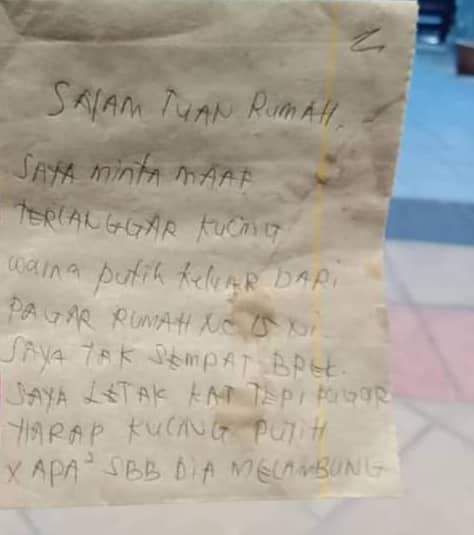 2
SALAM TUAN RUMAH.
SAYA minta MAAF
TERLANGGAR KUCING
warna putih keluar DARI
PAGAR RUMAH NO 15 NI.
SAYA TAK SEMPAT BREK.
SAYA LETAK KAT TEPI PAGAR
HARAP KUCING PUTIH
X APA² SBB DIA MELAMBUNG